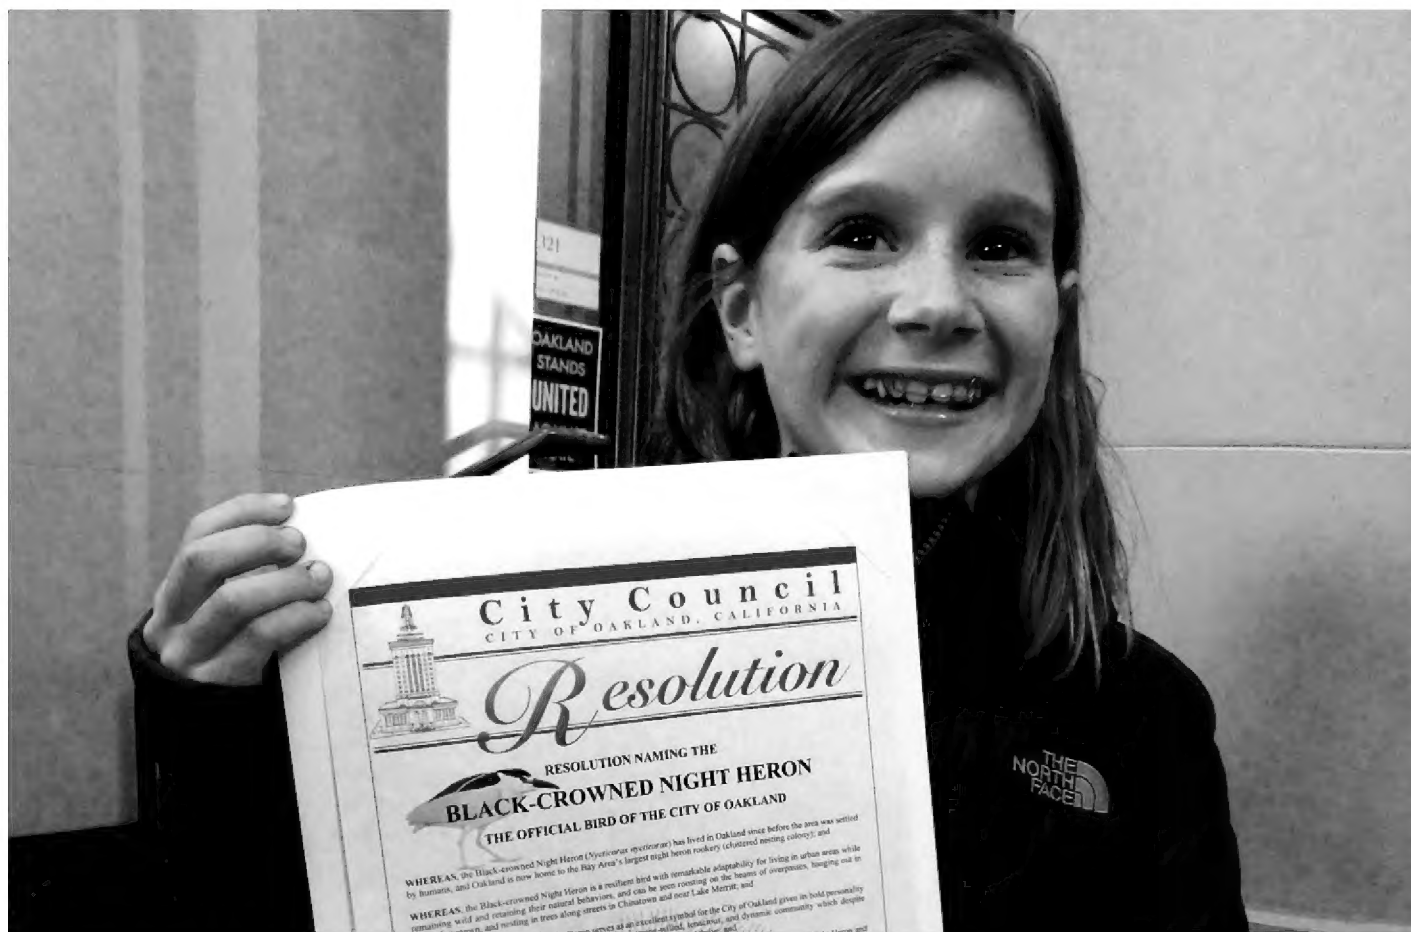 321
OAKLAND
STANDS
UNITED
City Council
CITY OF OAKLAND, CALIFORNIA
Resolution
RESOLUTION NAMING THE
BLACK-CROWNED NIGHT HERON
THE OFFICIAL BIRD OF THE CITY OF OAKLAND
WHEREAS, the Black-crowned Night Heron (Nycticorax nycticorax) has lived in Oakland since before the area was settled
by humans, and Oakland is now home to the Bay Area's largest night heron rookery (clustered nesting colony); and
WHEREAS, the Black-crowned Night Heron is a resilient bird with remarkable adaptability for living in urban areas while
remaining wild and retaining their natural behaviors, and can be seen roosting on the beams of overpasses, hanging out in
and nesting in trees along streets in Chinatown and near Lake Merritt; and
serves as an excellent symbol for the City of Oakland given its bold personality
tenacious, and dynamic community which despite
THE
NORTH
FACE